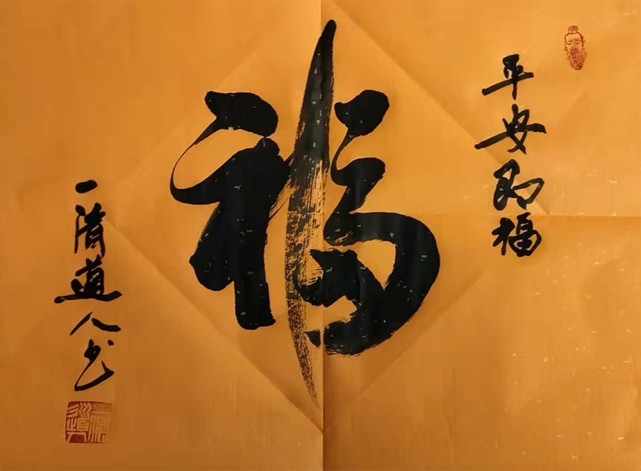 平安即福
福
一清道人书